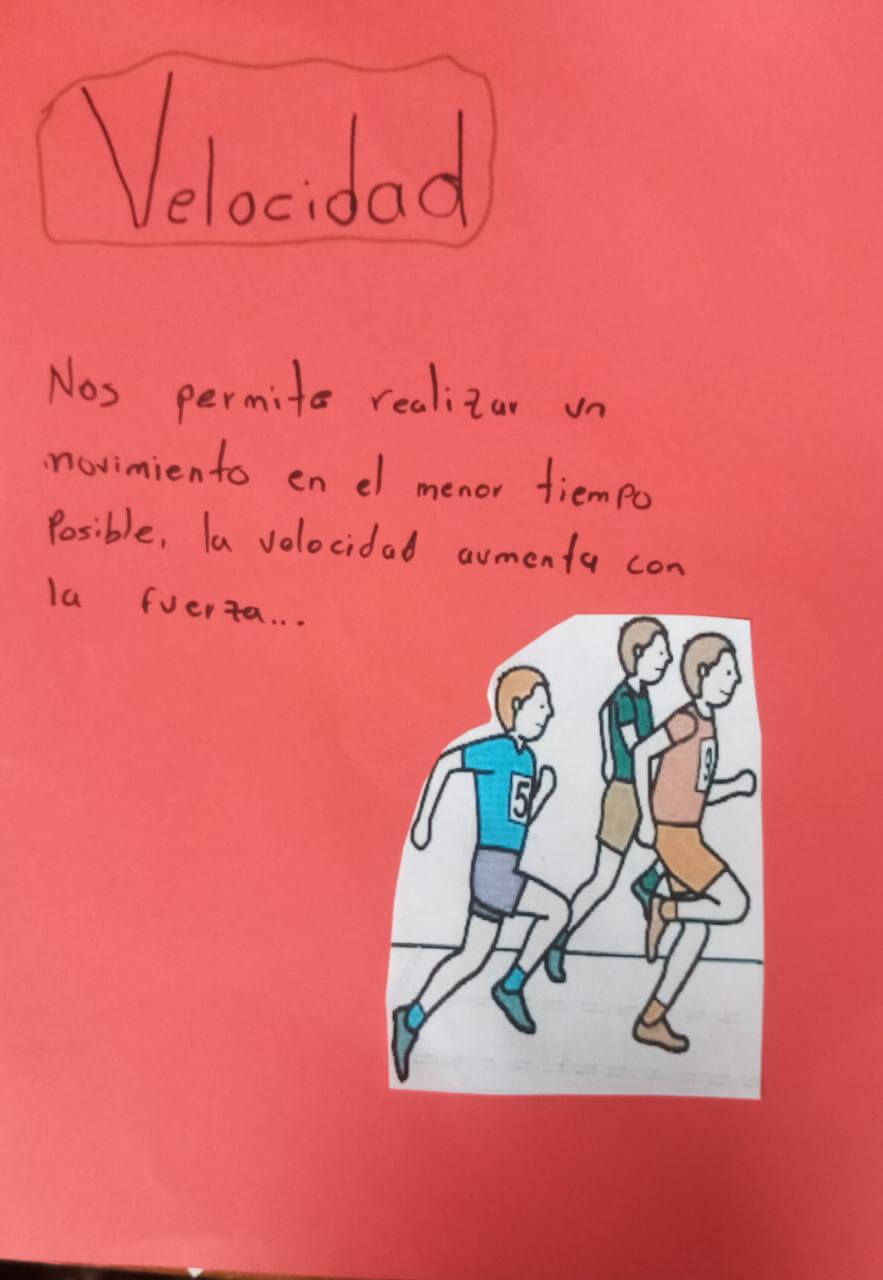 Velocidad
Nos permite realizar un
movimiento en el menor tiempo
Posible, la velocidad aumenta con
la fuerza...
5
9